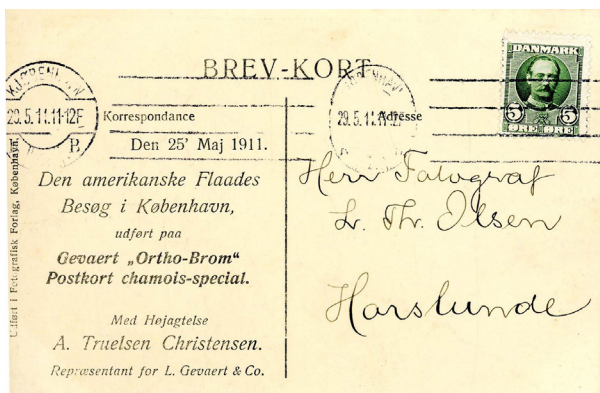 BREV-KORT
DANMARK
5 5
ØRE ØRE
KJØBENHAVN
29.5.11.11-12F
B.
29.5.11.11-12F
Korrespondance
Adresse
Den 25' Maj 1911.
Den amerikanske Flaades
Besøg i København,
udført paa
Gevaert „Ortho-Brom“
Postkort chamois-special.
Med Højagtelse
A. Truelsen Christensen.
Repræsentant for L. Gevaert & Co.
Udført i Fotografisk Forlag, København.
Herr Fotograf
Thr. Olsen
Harslunde